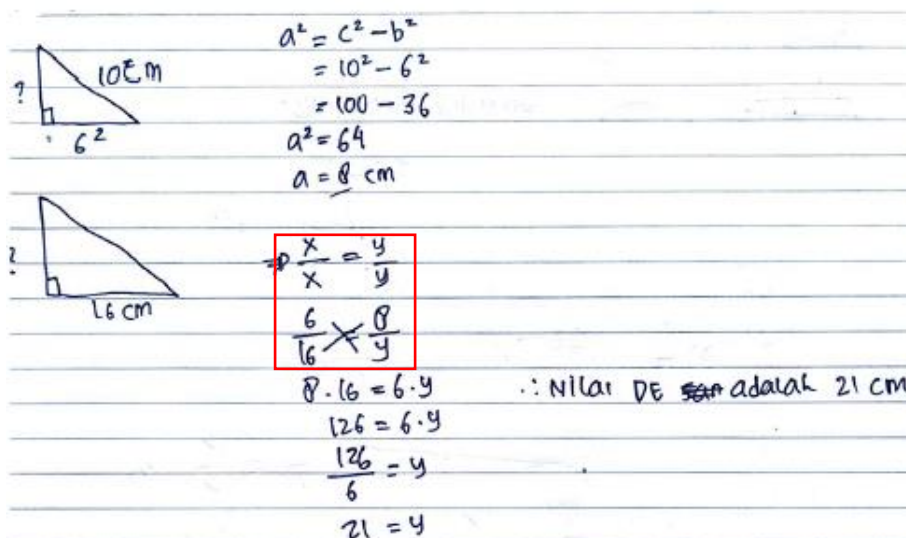 10 cm
?
6²
a² = c² - b²
= 10² - 6²
= 100 - 36
a² = 64
a = 8 cm
?
16 cm
⇒ x/x = y/y
6/16 = 8/y
8 · 16 = 6 · y
126 = 6 · y
126/6 = y
21 = y
∴ Nilai DE adalah 21 cm